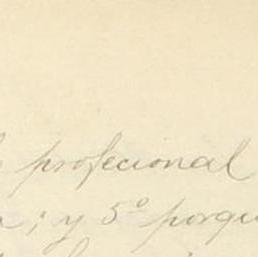 profecional
; y 5º porqu